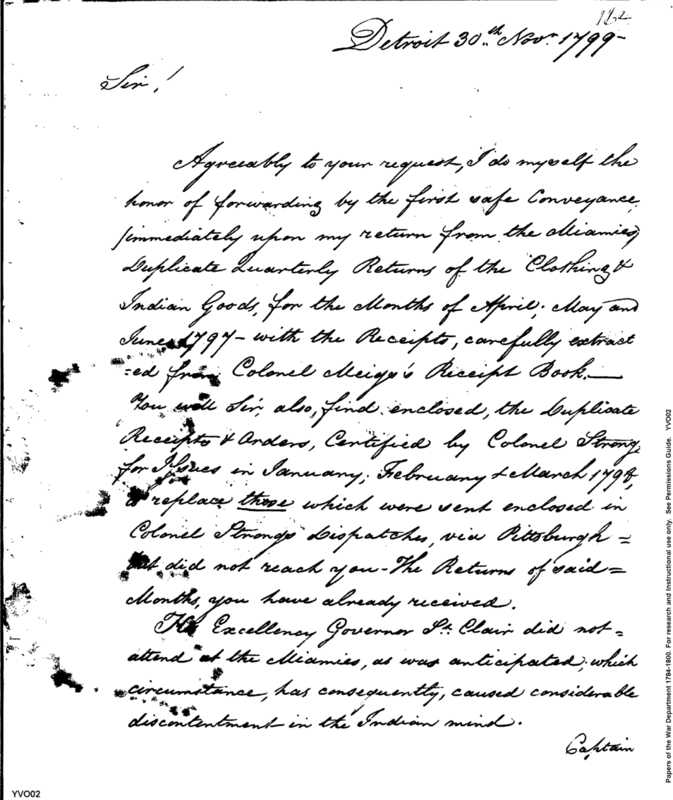 182
Detroit 30.th Novr. 1799-
Sir!
Agreeably to your request, I do myself the
honor of forwarding by the first safe Conveyance
(immediately upon my return from the Miamies)
Duplicate Quarterly Returns of the Clothing &
Indian Goods, for the Months of April, May and
June 1797 - with the Receipts, carefully extract
=ed from Colonel Meigs's Receipt Book.—
You will Sir, also, find enclosed, the Duplicate
Receipts & Orders, Certified by Colonel Strong
for Issues in January, February & March 1798,
to replace those which were sent enclosed in
Colonel Strongs Dispatches, via Pittsburgh =
but did not reach you - The Returns of said =
Months, you have already received.
His Excellency Governor St. Clair did not =
attend at the Miamies, as was anticipated; which
circumstance, has consequently, caused considerable
discontentment in the Indian mind.
Captain
Papers of the War Department 1784-1800. For research and instructional use only. See Permissions Guide. YVO02
YVO02